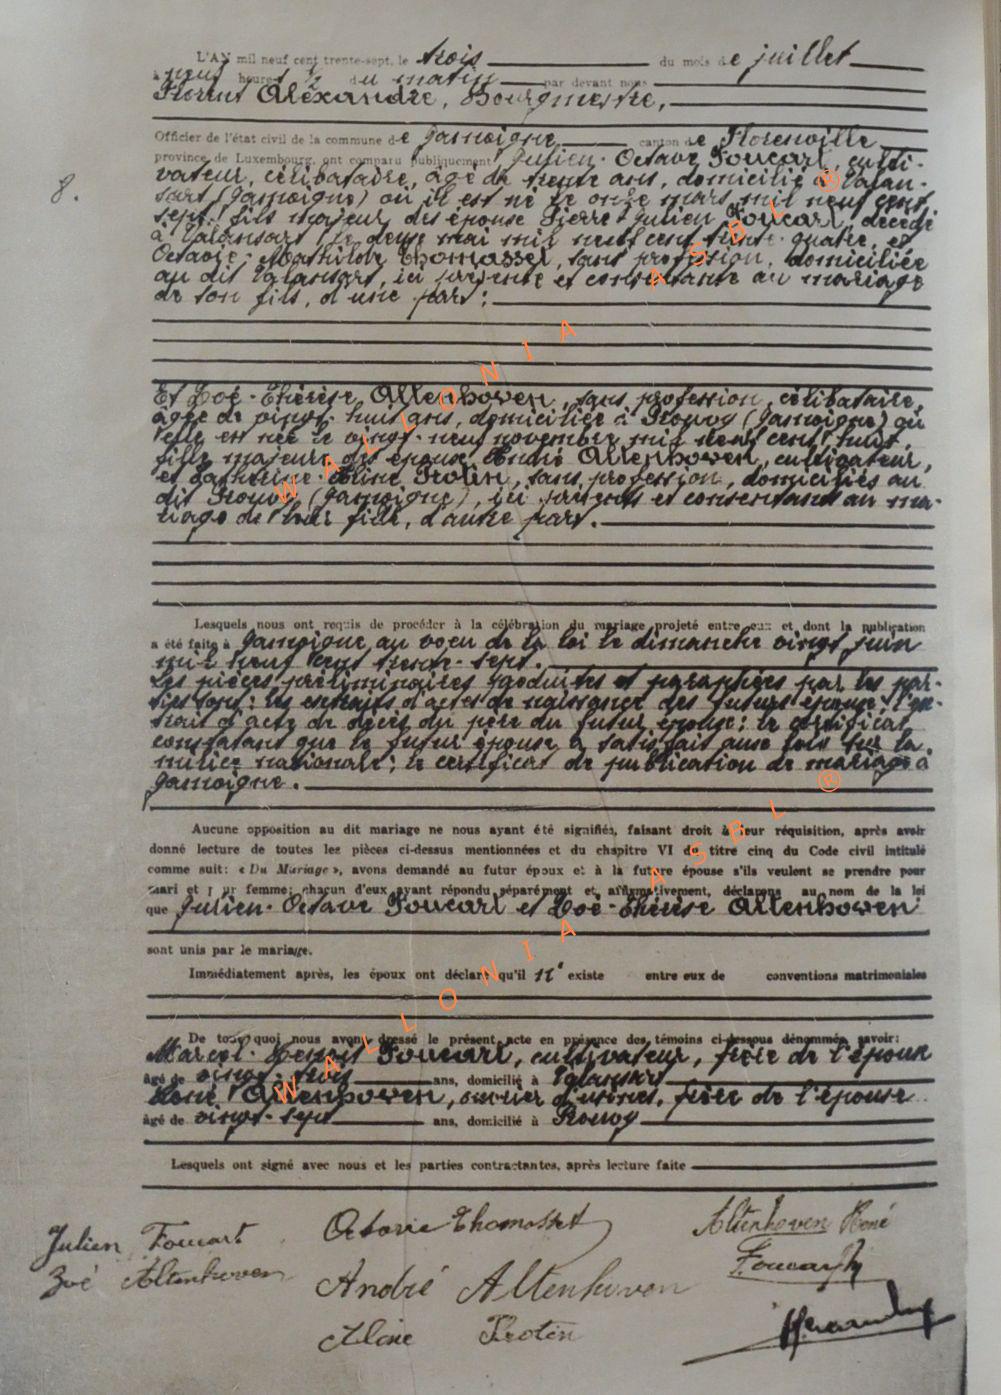 L'AN mil neuf cent trente-sept, le trois du mois de juillet
à neuf heures ½ du matin par devant nous
Florent Alexandre, Bourgmestre,
Officier de l'état civil de la commune de Jamoigne canton de Florenville
province de Luxembourg, ont comparu publiquement Julien-Octave Foucart, culti-
8.
vateur, célibataire, âgé de trente ans, domicilié à Valan-
sart (Jamoigne) où il est né le onze mars mil neuf cent
sept, fils majeur des époux Pierre-Julien Foucart, décédé
à Valansart, le deux mai mil neuf cent trente-quatre, et
Octavie-Mathilde Thomasset, sans profession, domiciliée
au dit Valansart, ici présente et consentante au mariage
de son fils, d'une part;
Et Zoé-Thérèse Altenhoven, sans profession, célibataire,
âgée de vingt-huit ans, domiciliée à Prouvy (Jamoigne) où
elle est née le vingt-neuf novembre mil neuf cent huit,
fille majeure des époux André Altenhoven, cultivateur,
et Catherine-Aline Protin, sans profession, domiciliés au
dit Prouvy (Jamoigne), ici présents et consentant au ma-
riage de leur fille, d'autre part.
Lesquels nous ont requis de procéder à la célébration du mariage projeté entre eux et dont la publication
a été faite à Jamoigne au voeu de la loi le dimanche vingt juin
mil neuf cent trente-sept.
Les pièces préliminaires produites et paraphées par les par-
ties sont: les extraits d'actes de naissance des futurs époux; l'ex-
trait d'acte de décès du père du futur époux; le certificat
constatant que le futur époux a satisfait aux lois sur la
milice nationale; le certificat de publication de mariage à
Jamoigne.
Aucune opposition au dit mariage ne nous ayant été signifiée, faisant droit à leur réquisition, après avoir
donné lecture de toutes les pièces ci-dessus mentionnées et du chapitre VI du titre cinq du Code civil intitulé
comme suit: « Du Mariage », avons demandé au futur époux et à la future épouse s'ils veulent se prendre pour
mari et pour femme; chacun d'eux ayant répondu séparément et affirmativement, déclarons au nom de la loi
que Julien-Octave Foucart et Zoé-Thérèse Altenhoven
sont unis par le mariage.
Immédiatement après, les époux ont déclaré qu'il n' existe entre eux de conventions matrimoniales
De tout quoi nous avons dressé le présent acte en présence des témoins ci-dessous dénommés, savoir:
Marcel- Foucart, cultivateur, frère de l'époux
âgé de vingt-trois ans, domicilié à Valansart
René Altenhoven, ouvrier d'usines, frère de l'épouse
âgé de vingt-sept ans, domicilié à Prouvy
Lesquels ont signé avec nous et les parties contractantes, après lecture faite
Julien Foucart Octavie Thomasset Altenhoven René
Zoé Altenhoven André Altenhoven Foucart
Aline Protin
WALLONIA ASBL ®
WALLONIA ASBL ®